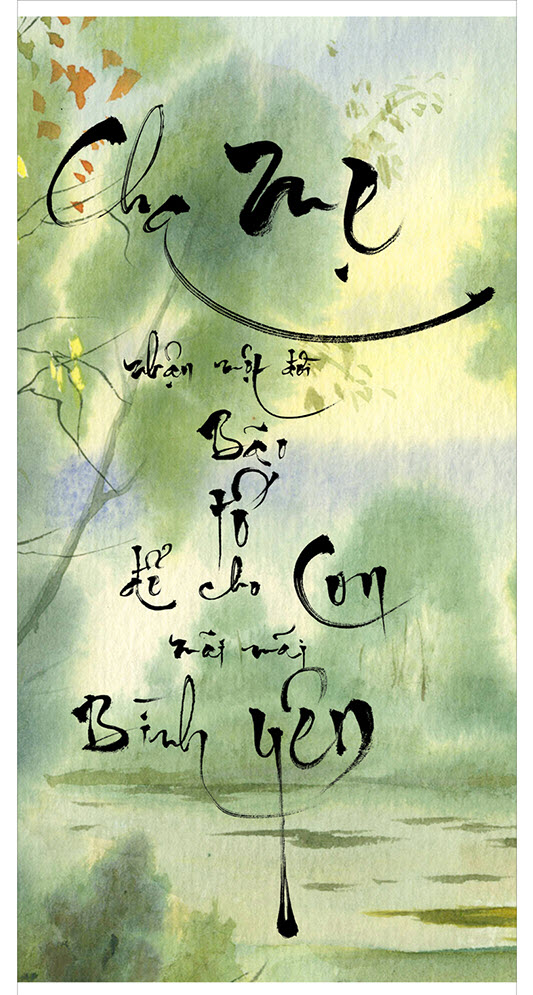 Cha Mẹ
nhận một đời
Bão
tố
để cho Con
mãi mãi
Bình yên